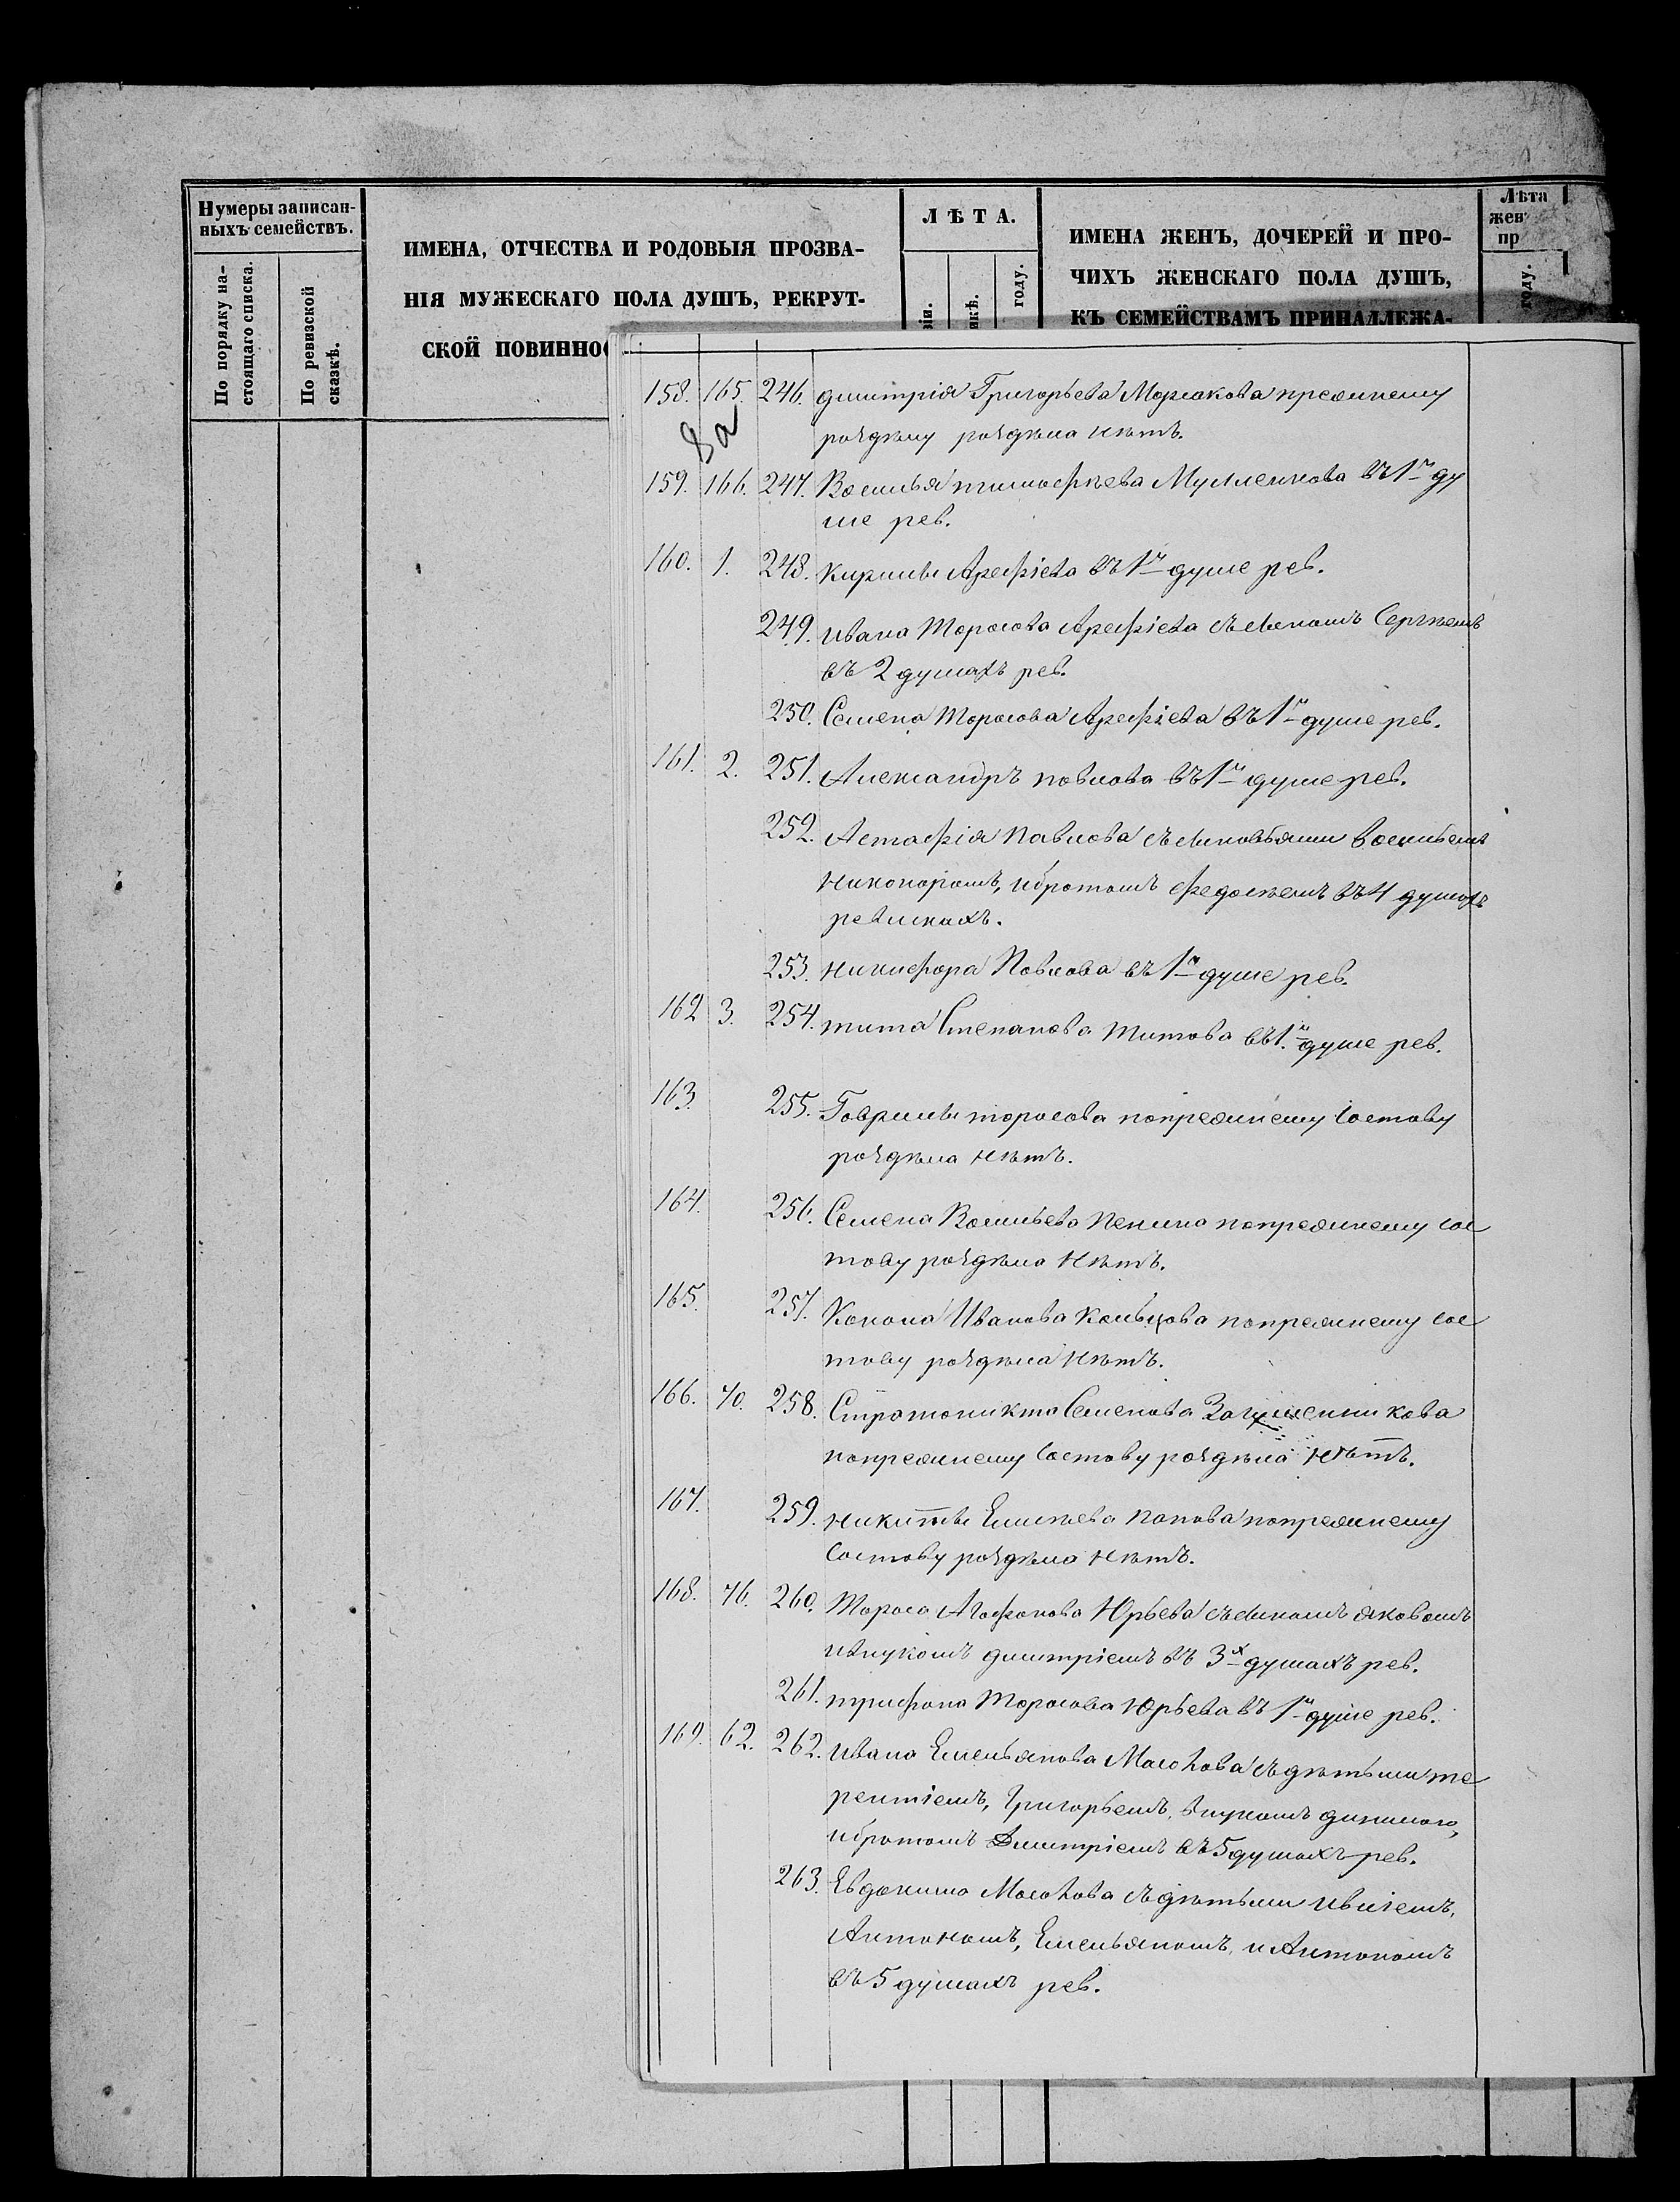 Нумеры записан-
ныхъ семействъ.
По порядку на-
стоящаго списка.
По ревизской
сказкѣ.
ИМЕНА, ОТЧЕСТВА И РОДОВЫЯ ПРОЗВА-
НІЯ МУЖЕСКАГО ПОЛА ДУШЪ, РЕКРУТ-
СКОЙ ПОВИННОС
ЛѢТА.
зіи.
икѣ.
году.
ИМЕНА ЖЕНЪ, ДОЧЕРЕЙ И ПРО-
ЧИХЪ ЖЕНСКАГО ПОЛА ДУШЪ,
КЪ СЕМЕЙСТВАМЪ ПРИНАДЛЕЖА-
Лѣта
жен
пр
году.
158. 165. 246. димитрія Григорьева прежнему
8а
роздѣлу роздѣла нѣтъ.
159. 166. 247. Василья тимофѣева въ 1й ду
ше рев.
160. 1. 248. кирилы Арефіева въ 1й душе рев.
249. ивана Торосова Арефіева съ сыномъ Сергѣемъ
въ 2 душахъ рев.
250. Семена Торосова Арефіева въ 1й душе рев.
161. 2. 251. Александръ повлова въ 1й душе рев.
252. Астафія Павлова съ сыновьями восильемъ
никоноромъ, и братомъ федосѣемъ въ 4 душахъ
ревискихъ.
253. никифора Повлова въ 1й душе рев.
162 3. 254. тита Степанова Титова въ 1.й душе рев.
163. 255. Гаврилы торосова попрежнему состову
роздѣла нѣтъ.
164. 256. Семена Васильева Пенина попрежнему сос
тову роздѣла нѣтъ.
165. 257. Конона Иванова Кольцова попрежнему сос
тову роздѣла нѣтъ.
166. 70. 258. Стратоникта Семенова
попрежнему состову роздѣла нѣтъ.
167. 259. никиты Елисѣева попова попрежнему
состову роздѣла нѣтъ.
168. 76. 260. Тороса Агафонова Юрьева съ сыномъ яковомъ
ивнукомъ димитріемъ въ 3х душахъ рев.
261. трифона Торосова Юрьева въ 1й душе рев.
169. 62. 262. ивана Емельянова Мосолова съ дѣтьми те
рентіемъ, Григорьемъ, внукомъ
и братомъ Димитріемъ въ 5 душахъ рев.
263. Евдокима Мосолова съ дѣтьми ивлiемъ,
Антономъ, Емельяномъ, и Антономъ
въ 5 душахъ рев.